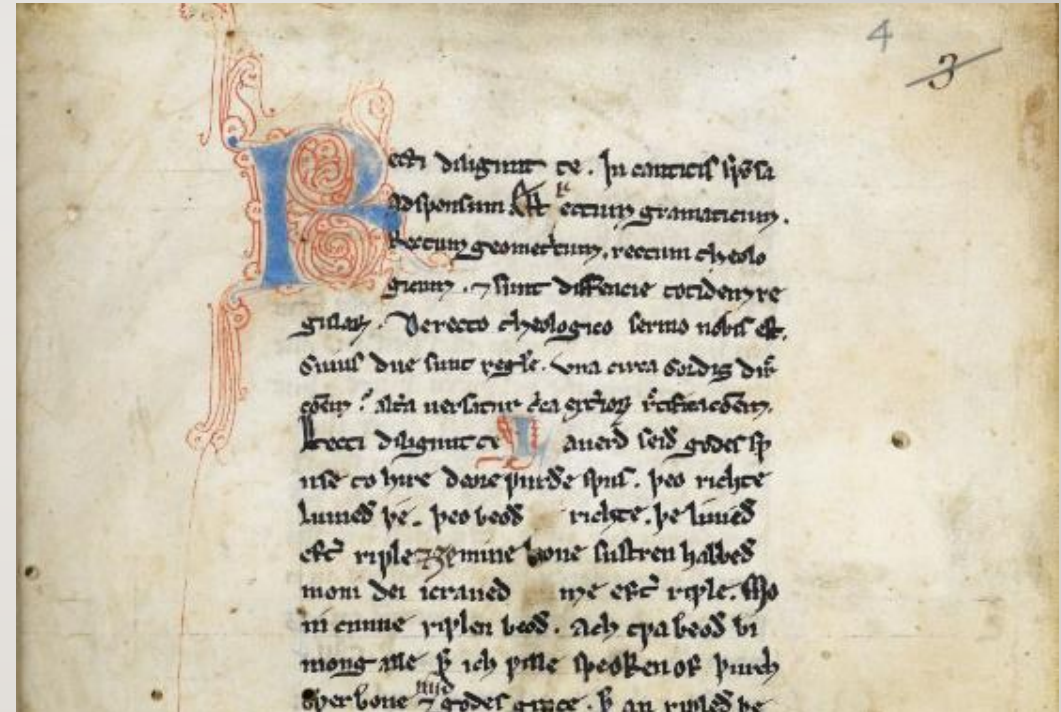 4
3
Recti diligunt te. In canticis spōsa
ad sponsum. Est rectum gramaticum.
Rectum geometcum. rectum theolo
gicum. ⁊ sunt differencie totidem re
gulaꝝ. De recto theologico sermo nobis est.
Cuius due sunt regle. vna circa cordis
uersatur
Recti diligunt te L auerd seið godes sp
use to hire spus. þeo richte
luuieð þe. þeo beoð richte. þe liuieð
eft̄ riwle ⁊ ȝe mine leoue sustren habbeð
moni dei icraued me eft̄ riwle. Mo
ni cunne riwlen beoð. Ach twa beoð bi
mong alle ꝥ ich wille speoken of þurch
ower bone ⁊ godes grace. ꝥ an riwleð þe